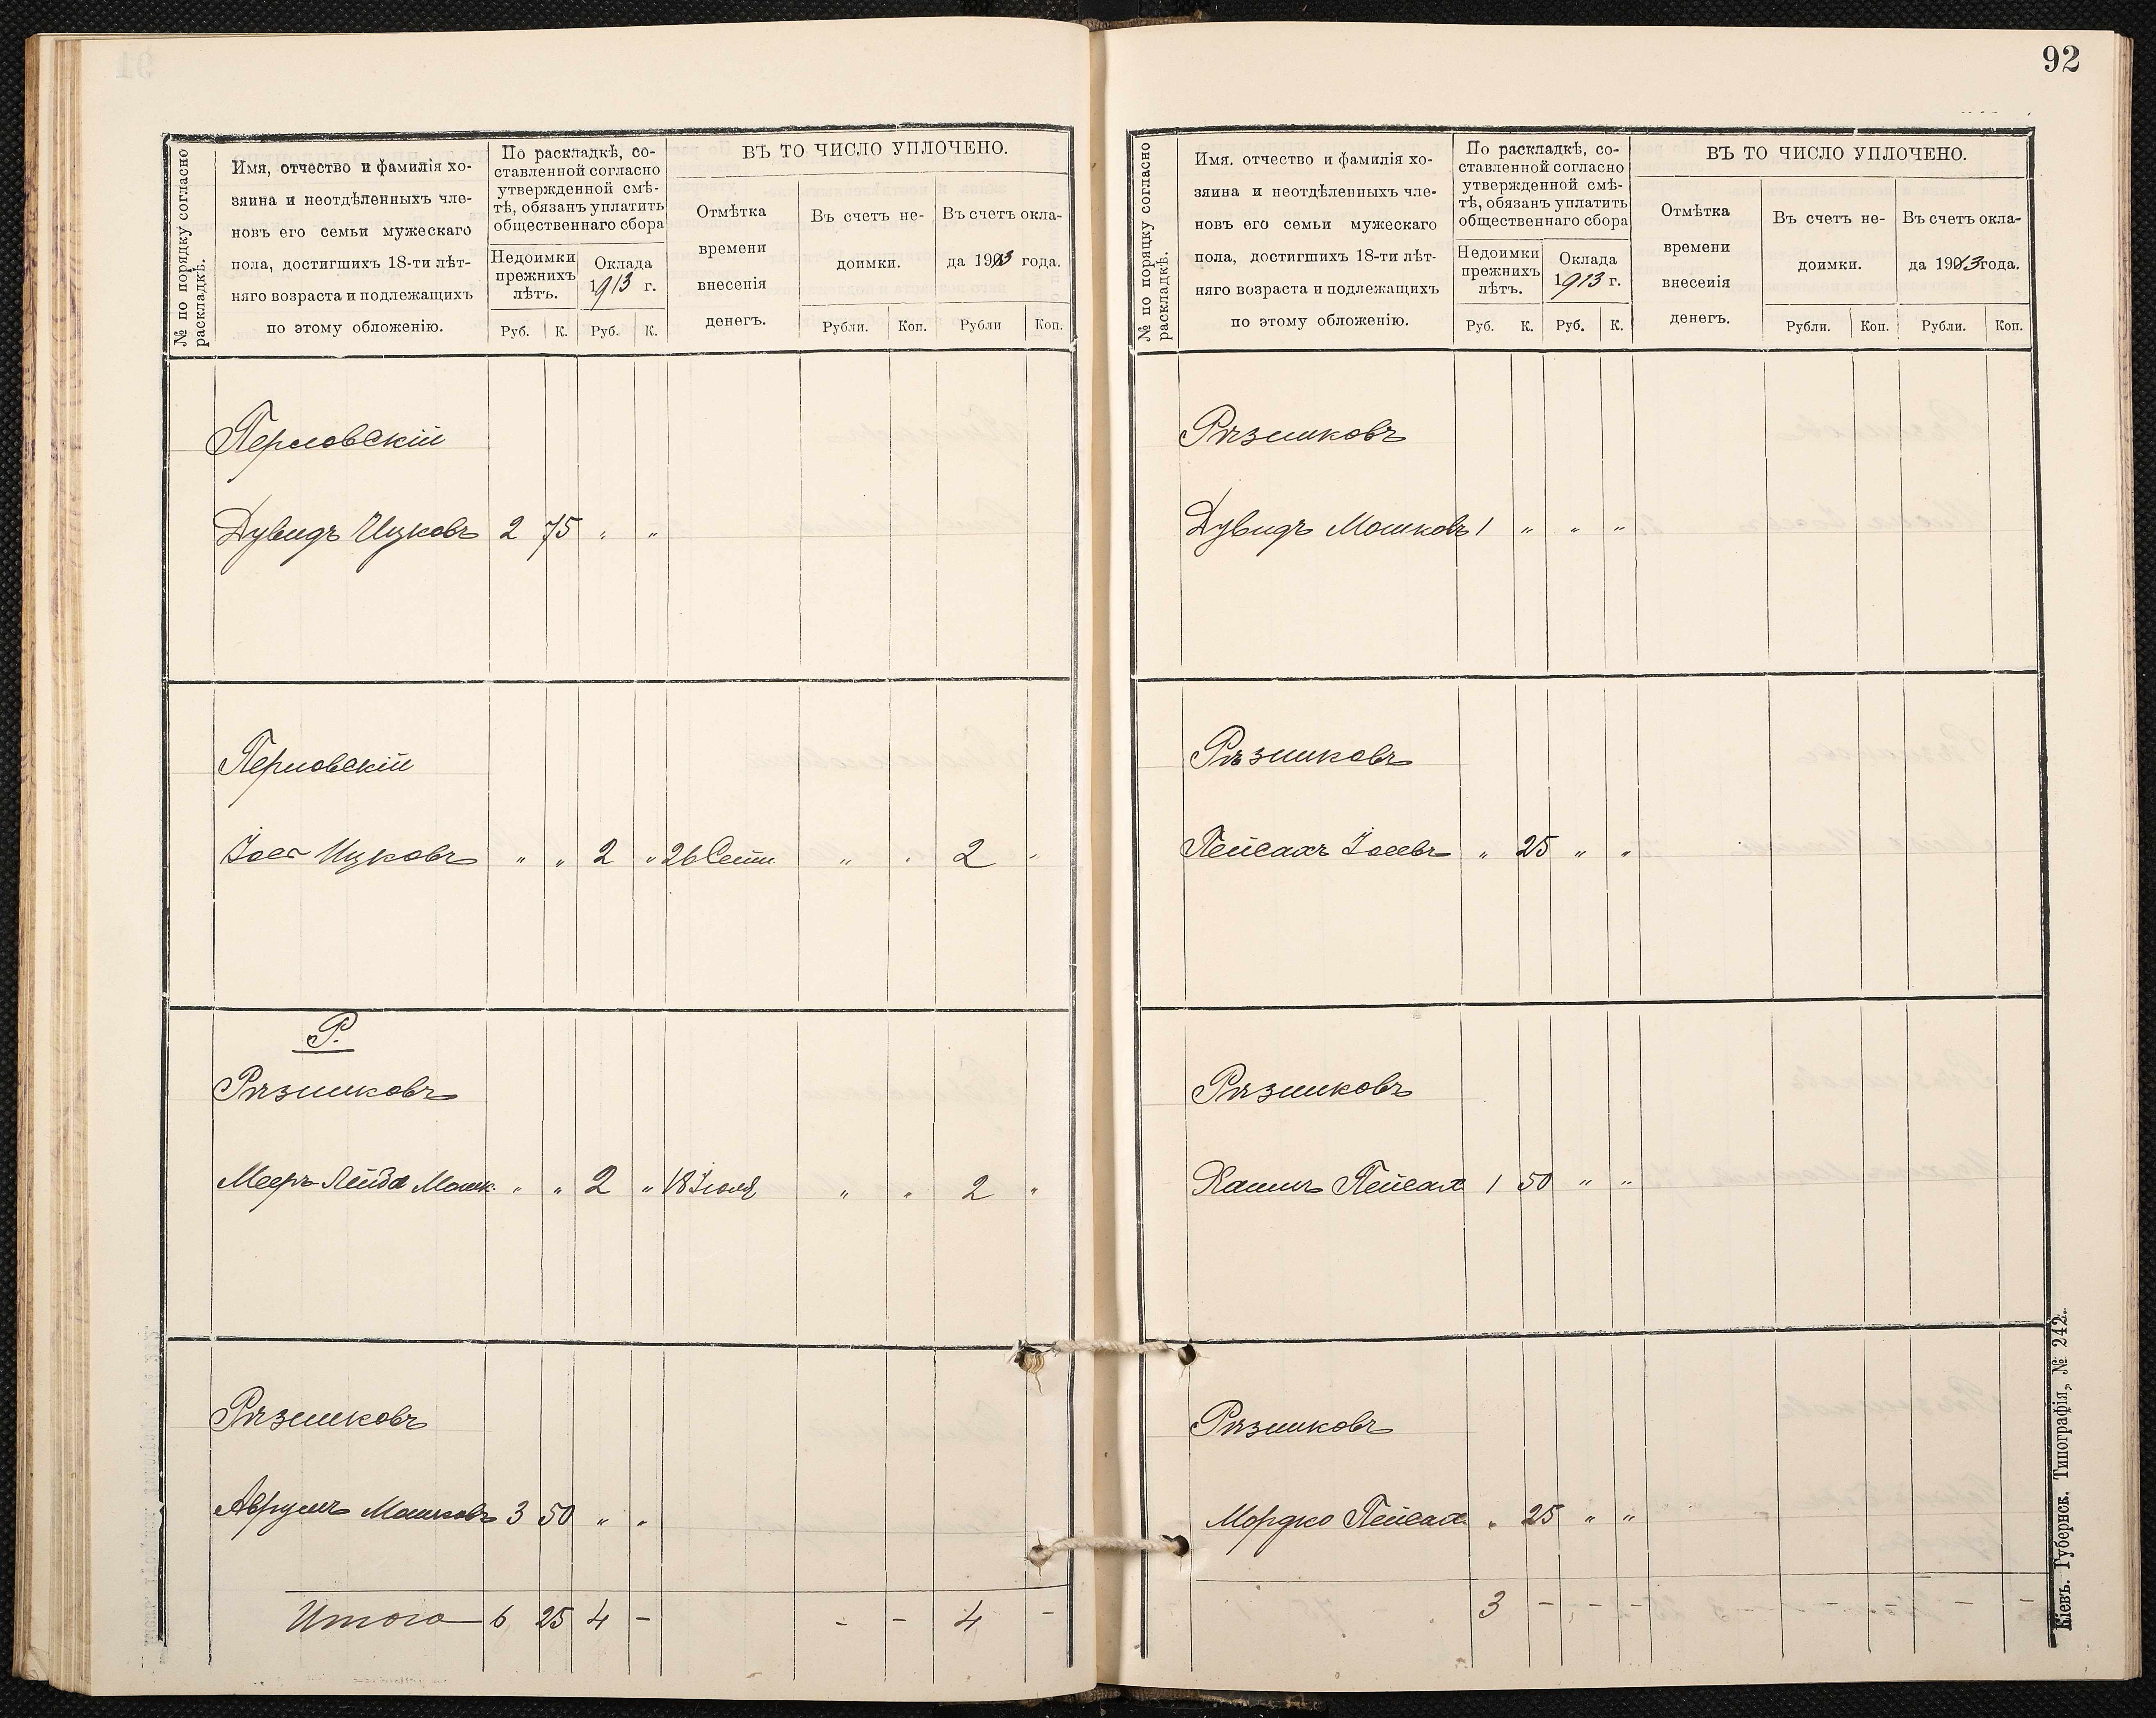 92
№ по порядку согласно
раскладкѣ.
Имя, отчество и фамилія хо-
зяина и неотдѣленныхъ чле-
новъ его семьи мужескаго
пола, достигшихъ 18-ти лѣт-
няго возраста и подлежащихъ
по этому обложенію.
По раскладкѣ, со-
ставленной согласно
утвержденной смѣ-
тѣ, обязанъ уплатить
общественнаго сбора
Недоимки
прежнихъ
лѣтъ.
Оклада
1913 г.
Руб. К. Руб. К.
ВЪ ТО ЧИСЛО УПЛОЧЕНО.
Отмѣтка
времени
внесенія
денегъ.
Въ счетъ не-
доимки.
Въ счетъ окла-
да 1913 года.
Рубли. Коп. Рубли Коп.
Перловскій
Дувидъ Ицковъ 2 75 " "
Перловскій
Іось Ицковъ " " 2 " 26 Сент " " 2 "
Р.
Рѣзниковъ
Мееръ-Лейба Мошк. " " 2 " 18 Іюля " " 2 "
Рѣзниковъ
Аврумъ Мошковъ 3 50 " "
Итого 6 25 4 - - - 4 -
№ по порядку согласно
раскладкѣ.
Имя. отчество и фамилія хо-
зяина и неотдѣленныхъ чле-
новъ его семьи мужескаго
пола, достигшихъ 18-ти лѣт-
няго возраста и подлежащихъ
по этому обложенію.
По раскладкѣ, со-
ставленной согласно
утвержденной смѣ-
тѣ, обязанъ уплатить
общественнаго сбора
Недоимки
прежнихъ
лѣтъ.
Оклада
1913 г.
Руб. К. Руб. К.
ВЪ ТО ЧИСЛО УПЛОЧЕНО.
Отмѣтка
времени
внесенія
денегъ.
Въ счетъ не-
доимки.
Въ счетъ окла-
да 1913 года.
Рубли. Коп. Рубли. Коп.
Рѣзниковъ
Дувидъ Мошковъ 1 " " "
Рѣзниковъ
Пейсахъ Іосевъ " 25 " "
Рѣзниковъ
Хаимъ Пейсах 1 50 " "
Рѣзниковъ
Мордко Пейсах. " 25 " "
3 - - - - - - -
Кіевъ. Губернск. Типографія, № 242.